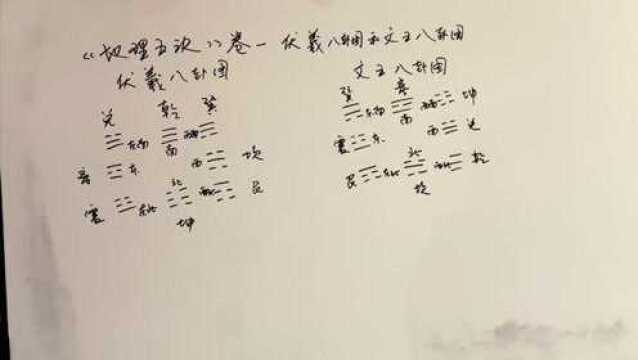 《地理五诀》卷一 伏羲八卦图和文王八卦图
伏羲八卦图
兑 乾 巽
东南 南 西南
离 东 西 坎
震 东北 北 西北 艮
坤
文王八卦图
巽 离 坤
东南 南 西南
震 东 西 兑
艮 东北 北 西北 乾
坎